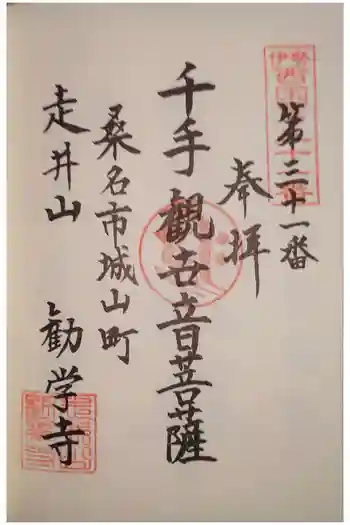 第三十一番
奉拝
千手観世音菩薩
桑名市城山町
走井山 勧学寺